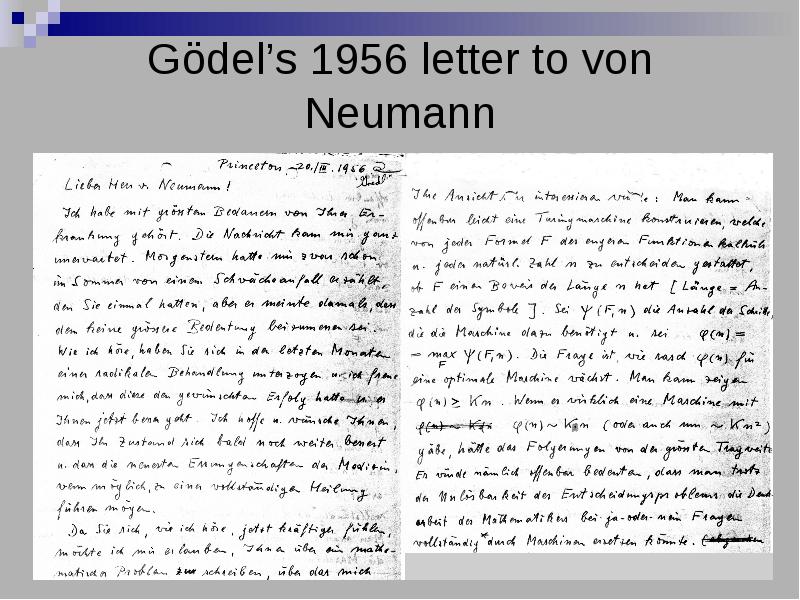 Gödel's 1956 letter to von
Neumann
Princeton, 20./III. 1956
Lieber Herr v. Neumann!
Ich habe mit grösstem Bedauern von Ihrer Er-
krankung gehört. Die Nachricht kam mir ganz
unerwartet. Morgenstern hatte mir zwar schon
im Sommer von einem Schwächeanfall erzählt,
den Sie einmal hatten, aber er meinte damals, dass
dem keine grössere Bedeutung beizumessen sei.
Wie ich höre, haben Sie sich in den letzten Monaten
einer radikalen Behandlung unterzogen u. ich freue
mich, dass diese den gewünschten Erfolg hatte u. es
Ihnen jetzt besser geht. Ich hoffe u. wünsche Ihnen,
dass Ihr Zustand sich bald noch weiter bessert
u. dass die neuesten Errungenschaften der Medizin,
wenn möglich, zu einer vollständigen Heilung
führen mögen.
Da Sie sich, wie ich höre, jetzt kräftiger fühlen,
möchte ich mir erlauben, Ihnen über ein mathe-
matisches Problem zu schreiben, über das mich
Ihre Ansicht sehr interessieren würde: Man kann
offenbar leicht eine Turingmaschine konstruieren, welche
von jeder Formel F des engeren Funktionenkalküls
u. jeder natürl. Zahl n zu entscheiden gestattet,
ob F einen Beweis der Länge n hat [Länge = An-
zahl der Symbole]. Sei Ψ(F,n) die Anzahl der Schritte,
die die Maschine dazu benötigt u. sei φ(n) =
= max Ψ(F,n). Die Frage ist, wie rasch φ(n) für
F
eine optimale Maschine wächst. Man kann zeigen
φ(n) ≥ Kn. Wenn es wirklich eine Maschine mit
φ(n) ~ Kn (oder auch nur ~ Kn²)
gäbe, hätte das Folgerungen von der grössten Tragweite.
Es würde nämlich offenbar bedeuten, dass man trotz
der Unlösbarkeit des Entscheidungsproblems die Denk-
arbeit des Mathematikers bei ja-oder-nein Fragen
vollständig* durch Maschinen ersetzen könnte.